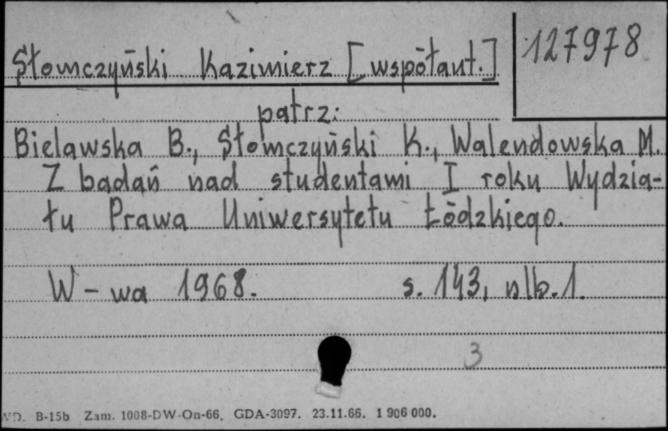 Słomczyński Kazimierz [współaut.]
127978
patrz:
Bielawska B., Słomczyński K., Walendowska M.
Z badań nad studentami I roku Wydzia-
łu Prawa Uniwersytetu Łódzkiego.
W-wa 1968. s. 143, nlb. 1.
3
B-15b Zam. 1008-DW-On-66, GDA-3097. 23.11.66. 1 906 000.